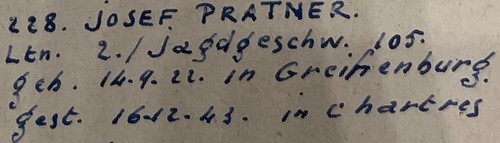 228. JOSEF PRATNER.
Ltn. 2./Jagdgeschw. 105.
geb. 14.9.22. in Greifenburg.
gest. 16.12.43. in Chartres